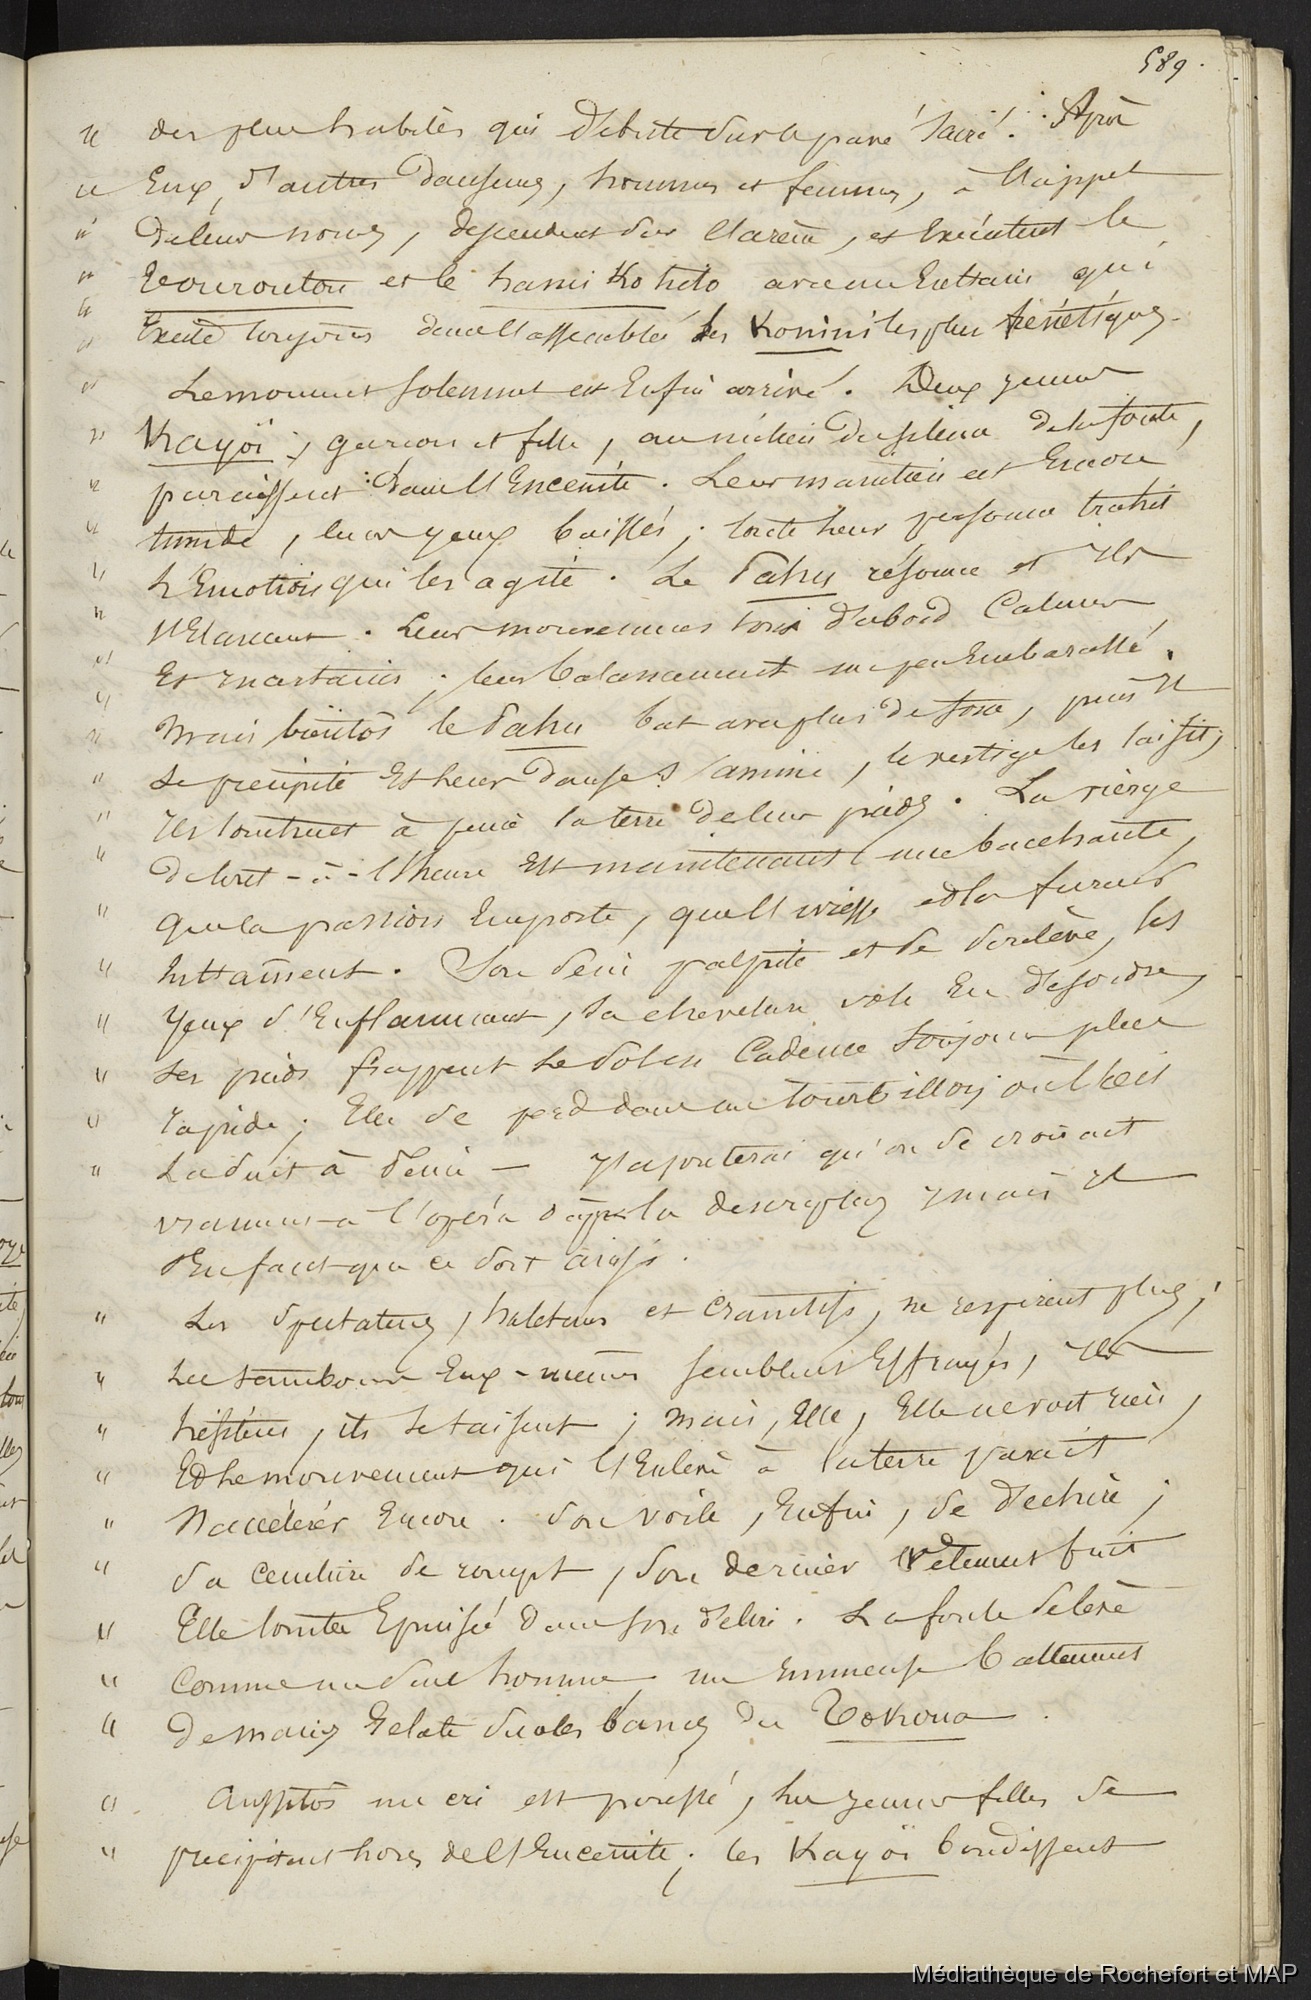 589.
" des plus habiles qui débute sur le pavé sacré. Après
" Eux, d'autres danseurs, hommes et femmes, à l'appel
" de leur noms, descendent dans l'arène, et Exécutent le
" et le hami Ko hito avec un Entrain qui
" Excite toujours dans l'assemblée les Koïnis les plus frénétiques.
" Le moment solennel est Enfin arrivé. Deux jeunes
" Kayoï, garçon et fille, au milieu du silence de la foule,
" paraissent dans l'Enceinte. Leur maintien est Encore
" timide, leurs yeux baissés; toute leur personne trahit
" L'Emotion qui les agite. Le Pahu résonne et ils
" s'Elancent. Leurs mouvemens sont d'abord Calmes
" Et incertains; leur balancement un peu Embarassé.
" Mais bientôt le Pahu bat avec plus de force, puis il
" se precipite Et leur danse s'anime, le vertige les saisit,
" Ils touchent à peine la terre de leur pieds. La vierge
" de tout-à-l'heure Est maintenant une bacchante,
" que la passion Emporte, que l'ivresse et la fureur
" Entrainent. Son sein palpite et se soulève, ses
" yeux s'Enflamment, sa chevelure vole En desordre,
" ses pieds frappent le sol en Cadence toujours plus
" rapide; Elle se perd dans un tourbillon où l'œil
" La suit à demi — J'ajouterai qu'on se croirait
vraiment à l'opéra d'après la description, mais il
s'En faut que ce soit ainsi.
" Les spectateurs, haletans et craintifs, ne respirent plus;
" Les tambours Eux-mêmes semblent Effrayés, ils
" hésitent, ils se taisent; mais, Elle, Elle ne voit rien,
" Et le mouvement qui l'Enlève à la terre parait
" s'accélérer Encore. Son voile, Enfin, se déchire;
" Sa ceinture se rompt, son dernier vêtement fuit
" Elle tombe Epuisée dans son délire. La foule se lève
" Comme un seul homme, un immense battement
" De mains Eclate sur les bancs du Tohoua.
" Aussitôt un cri est poussé, les jeunes filles se
" precipitent hors de l'Enceinte; les Kayoï bondissent
Médiathèque de Rochefort et MAP